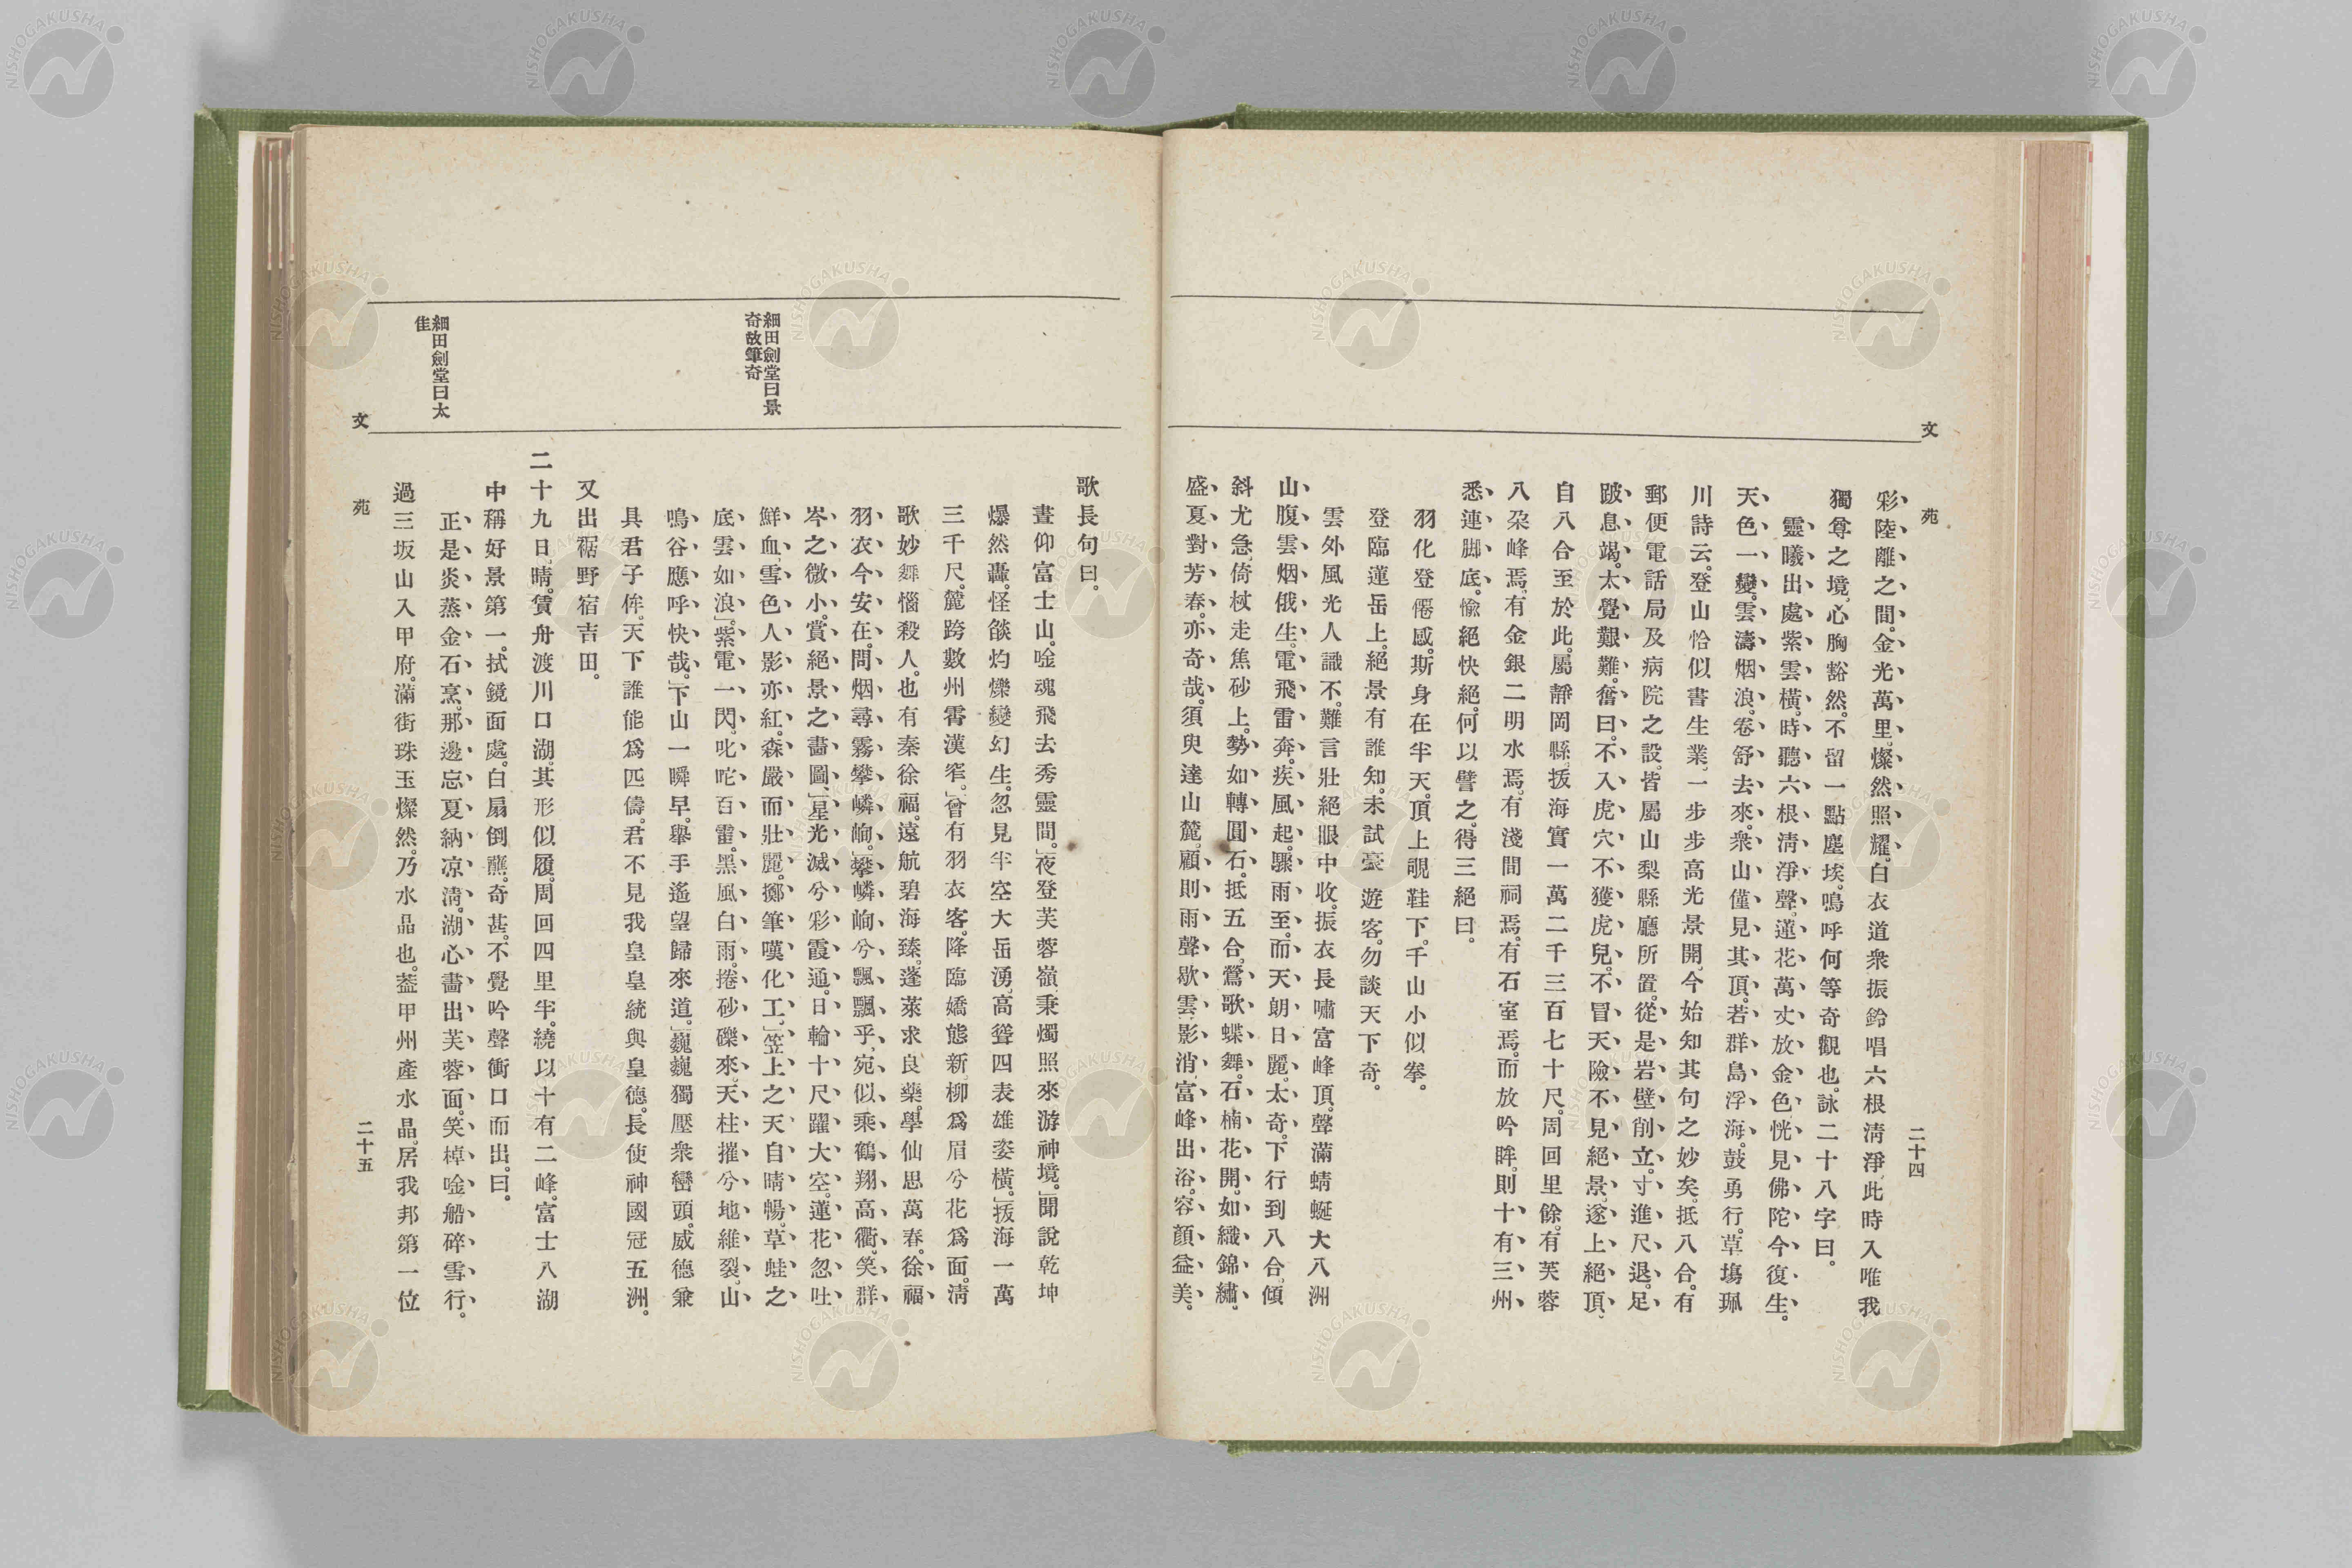 文苑
二十四
彩陸離之間。金光萬里。燦然照耀。白衣道衆振鈴唱六根清淨。此時入唯我
獨尊之境。心胸豁然。不留一點塵埃。嗚呼何等奇觀也。詠二十八字曰。
靈曦出處紫雲橫。時聽六根清淨聲。蓮花萬丈放金色。恍見佛陀今復生。
天色一變。雲濤烟浪。卷舒去來。衆山僅見其頂。若群島浮海。鼓勇行。草塲珮
川詩云。登山恰似書生業。一步步高光景開。今始知其句之妙矣。抵八合。有
郵便電話局及病院之設。皆屬山梨縣廳所置。從是岩壁削立。寸進尺退。足
跛息竭。太覺艱難。奮曰。不入虎穴不獲虎兒。不冒天險不見絕景。遂上絕頂。
自八合至於此。屬靜岡縣。拔海實一萬二千三百七十尺。周回里餘。有芙蓉
八朶峰焉。有金銀二明水焉。有淺間祠焉。有石室焉。而放吟眸。則十有三州
悉連脚底。愉絕快絕。何以譬之。得三絕曰。
羽化登僊感。斯身在半天。頂上覗鞋下。千山小似拳。
登臨蓮岳上。絕景有誰知。未試豪遊客。勿談天下奇。
雲外風光人識不。難言壯絕眼中收。振衣長嘯富峰頂。聲滿蜻蜒大八洲
山腹雲烟俄生。電飛雷奔。疾風起。驟雨至。而天朗日麗。太奇。下行到八合。傾
斜尤急。倚杖走焦砂上。勢如轉圓石。抵五合。鶯歌蝶舞。石楠花開。如織錦繡。
盛夏對芳春。亦奇哉。須臾達山麓。顧則雨聲歇。雲影消。富峰出浴。容顏益美。
歌長句曰。
晝仰富士山。唫魂飛去秀靈間。」夜登芙蓉嶺。秉燭照來游神境。」聞說乾坤
爆然轟。怪燄灼爍變幻生。忽見半空大岳湧。高聳四表雄姿橫。」拔海一萬
三千尺。麓跨數州霄漢窄。」曾有羽衣客。降臨嬌態新。柳爲眉兮花爲面。清
歌妙舞惱殺人。也有秦徐福。遠航碧海臻。蓬萊求良藥。學仙思萬春。徐福
羽衣今安在。問烟尋霧攀嶙峋。」攀嶙峋兮飄飄乎。宛似乘鶴翔高衢。笑群
岑之微小。賞絕景之畵圖。」星光滅兮彩霞通。日輪十尺躍大空。蓮花忽吐
鮮血。雪色人影亦紅。森嚴而壯麗。擲筆嘆化工。」笠上之天自晴暢。草鞋之
底雲如浪。」紫電一閃。叱咤百雷。黑風白雨。捲砂礫來。天柱摧兮地維裂。山
鳴谷應呼快哉。」下山一瞬早。擧手遙望歸來道。」巍巍獨壓衆巒頭。威德兼
具君子侔。天下誰能爲匹儔。君不見我皇皇統與皇德。長使神國冠五洲。
又出裾野宿吉田。
二十九日。晴。賃舟渡川口湖。其形似履。周回四里半。繞以十有二峰。富士八湖
中稱好景第一。拭鏡面處。白扇倒蘸。奇甚。不覺吟聲衝口而出。曰。
正是炎蒸金石烹。那邊忘夏納凉淸。湖心畵出芙蓉面。笑棹唫船碎雪行。
過三坂山入甲府。滿街珠玉燦然。乃水晶也。葢甲州產水晶。居我邦第一位
細田劍堂曰景
奇故筆奇
細田劍堂曰太
佳
文苑
二十五